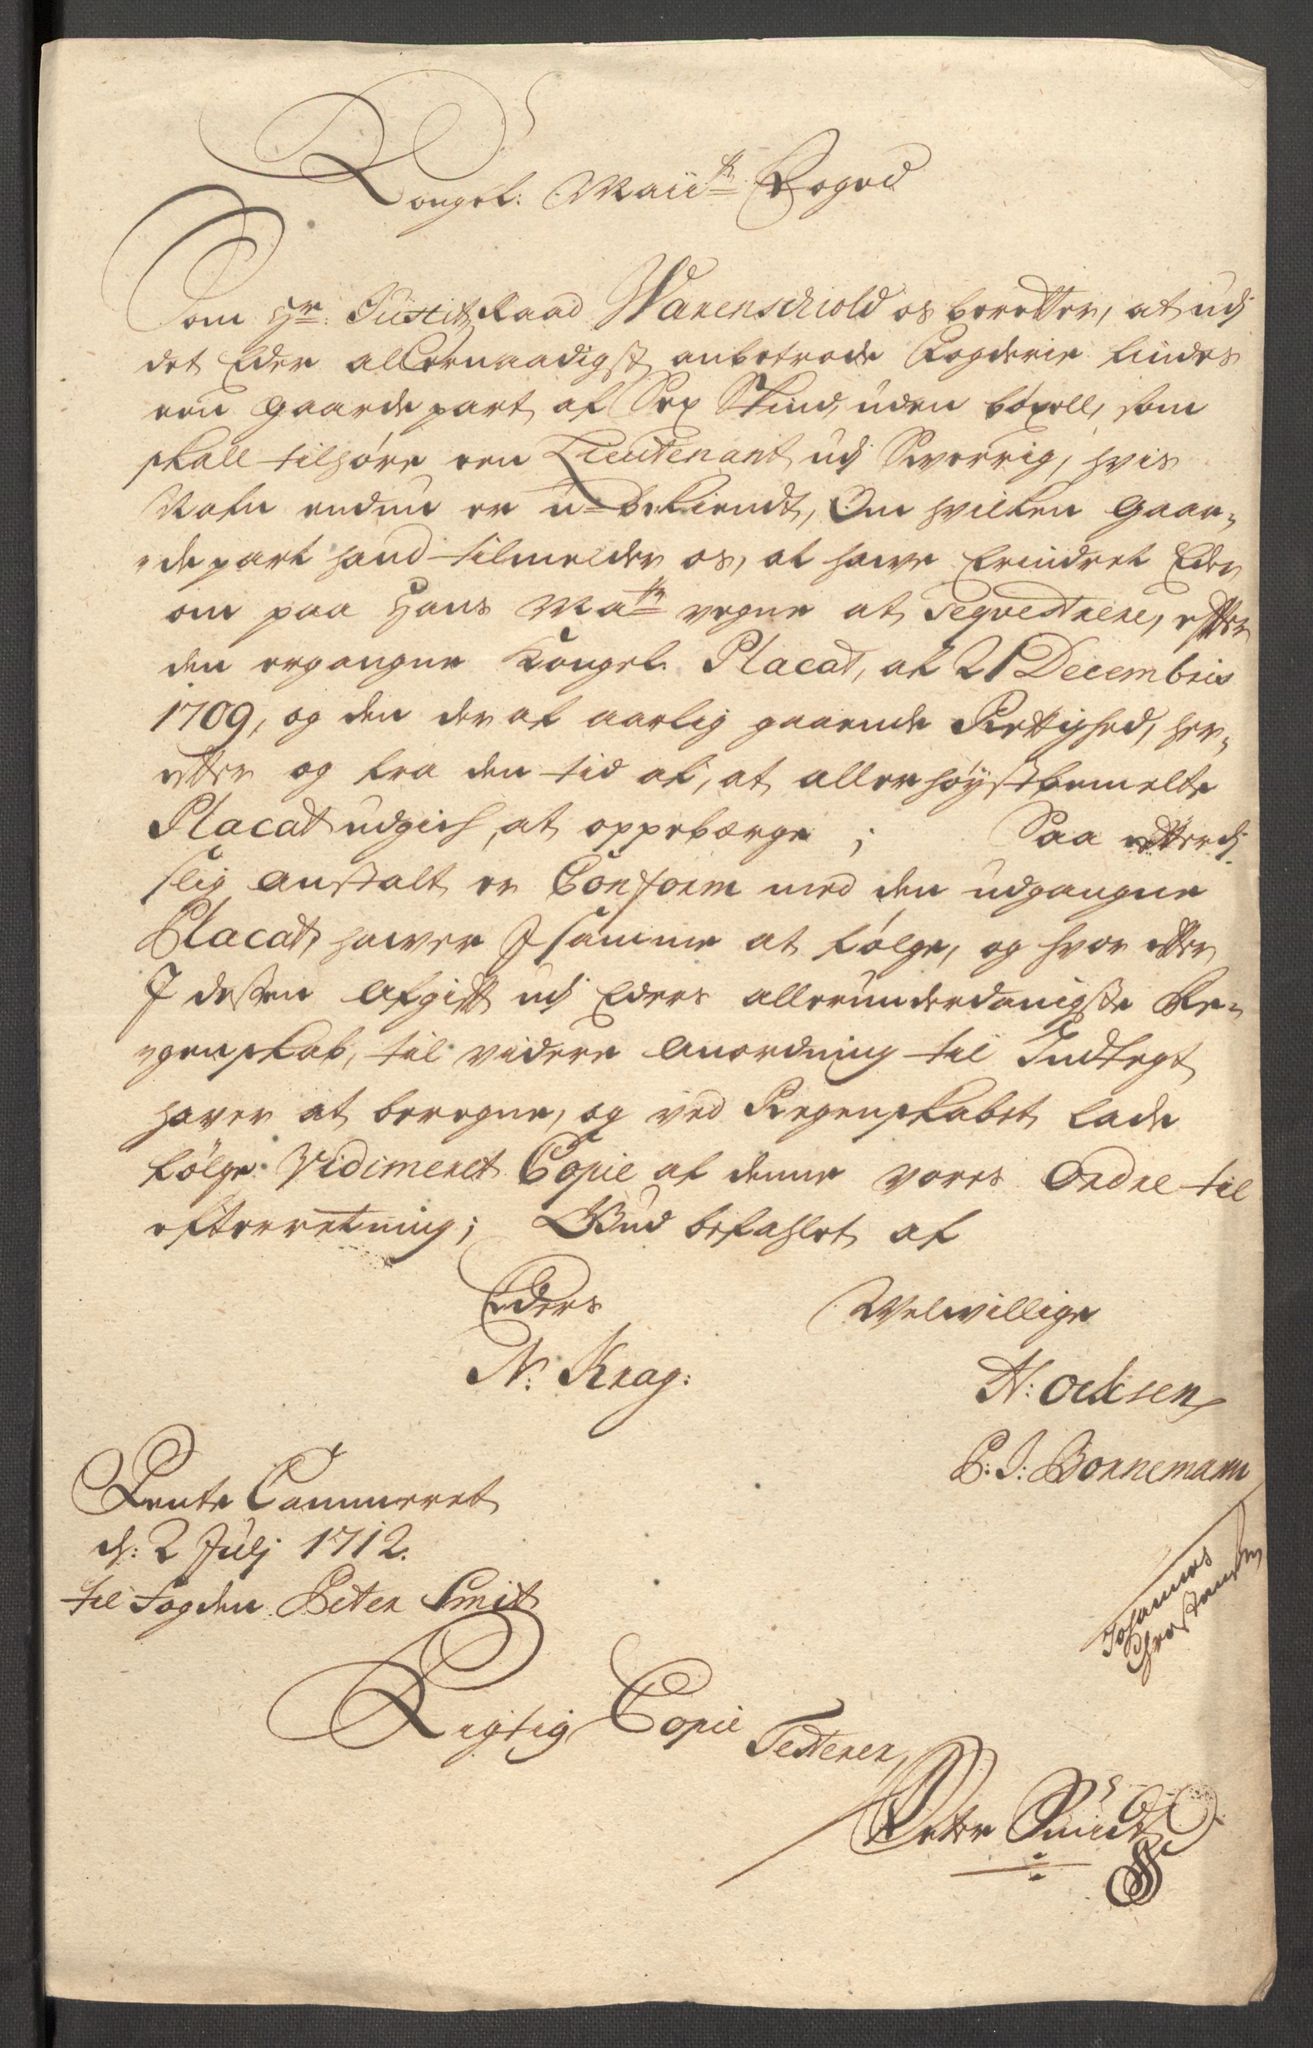 Kongel: Maii:ts Foged
Som Hr: Justitz Raad Warenschiold os beretter, at udj
det Eder allernaadigst anbetrode Fogderie findes
een gaardepart af Sex Skind, uden böxell, som
skall tilhöre een Lieutenant udj Sverrig, hvis
Nafn endnu er u-bekiendt, Om hvilken gaar-
depart hand tilmelder os, at have Erindret Eder
om paa Hans Ma:ts vegne at Seqvestrere, efter
den ergangne Kongel. Placat, af 21 Decembris
1709, og den der af aarlig gaaende Rettighed, her-
efter og fra den tid af, at allerhöystbemelte
Placat udgich, at oppebærge; Saa efterdj
slig anstalt er Conform med den udgangne
Placat, haver I samme at fölge, og hvor efter
I dessen Afgift udj Eders allerunderdanigste Re-
genskab, til videre Anordning til Indtegt
haver at beregne, og ved Regenskabet lade
fölge Vidimeret Copie af denne vores Ordre til
efterretning; Gud befahlet af
Eders Velvillige
N: Krag: H: Ocksen
P: J: Bornemann
Rente Cammeret
d: 2 Julj 1712.
til fogden Peter Smit
Johannes
Christensen
Rigtig Copie Testerer,
Peter Smidt